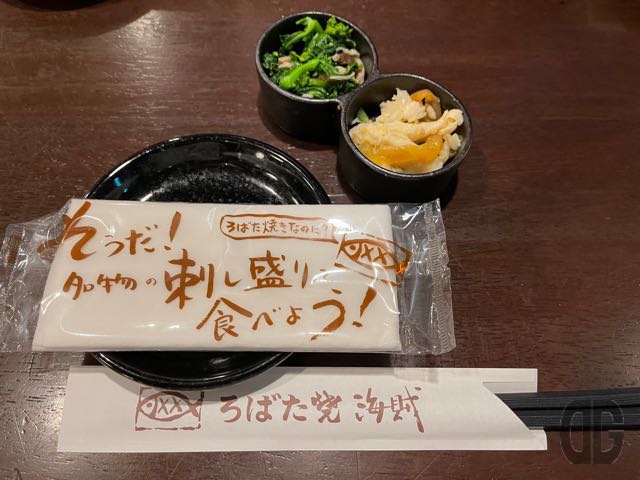 ろばた焼きなのに?!
そうだ!
名物の刺し盛り
食べよう!
ろばた焼 海賊
DG